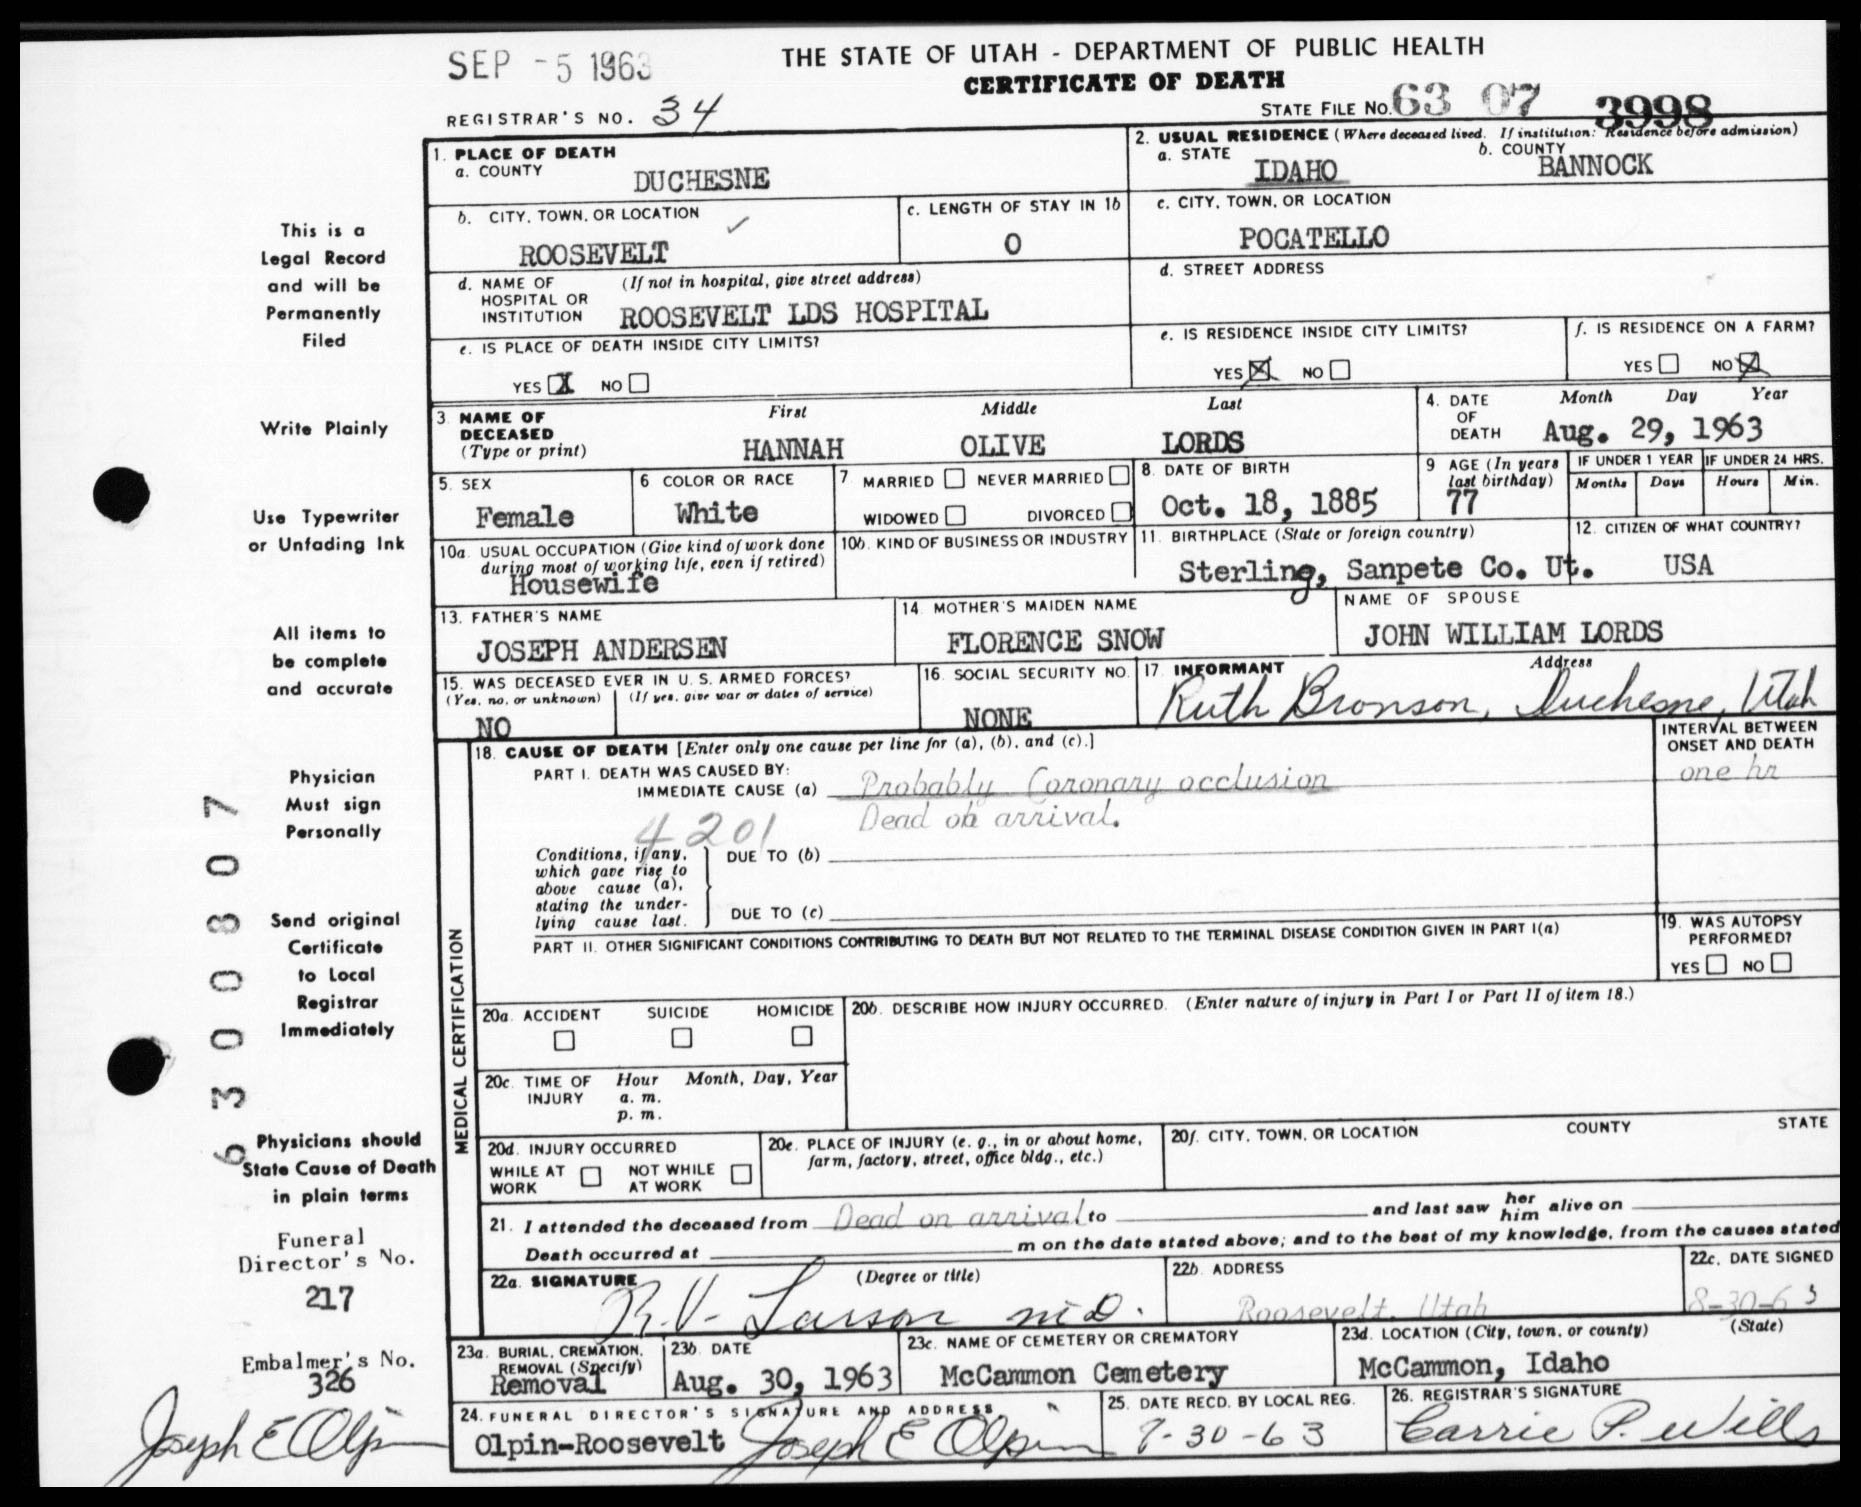 SEP - 5 1963
THE STATE OF UTAH - DEPARTMENT OF PUBLIC HEALTH
CERTIFICATE OF DEATH
REGISTRAR'S NO. 34
STATE FILE NO. 63 07 3998
1. PLACE OF DEATH
a. COUNTY DUCHESNE
2. USUAL RESIDENCE (Where deceased lived. If institution: Residence before admission)
a. STATE IDAHO b. COUNTY BANNOCK
b. CITY, TOWN, OR LOCATION ROOSEVELT
c. LENGTH OF STAY IN 1b 0
c. CITY, TOWN, OR LOCATION POCATELLO
d. NAME OF HOSPITAL OR INSTITUTION (If not in hospital, give street address)
ROOSEVELT LDS HOSPITAL
d. STREET ADDRESS
e. IS PLACE OF DEATH INSIDE CITY LIMITS?
YES X NO
e. IS RESIDENCE INSIDE CITY LIMITS?
YES X NO
f. IS RESIDENCE ON A FARM?
YES NO X
3. NAME OF DECEASED (Type or print)
First Middle Last
HANNAH OLIVE LORDS
4. DATE OF DEATH Month Day Year
Aug. 29, 1963
5. SEX Female
6 COLOR OR RACE White
7. MARRIED NEVER MARRIED
WIDOWED DIVORCED
8. DATE OF BIRTH Oct. 18, 1885
9 AGE (In years last birthday) 77
IF UNDER 1 YEAR Months Days
IF UNDER 24 HRS. Hours Min.
10a. USUAL OCCUPATION (Give kind of work done during most of working life, even if retired)
Housewife
10b. KIND OF BUSINESS OR INDUSTRY
11. BIRTHPLACE (State or foreign country)
Sterling, Sanpete Co. Ut.
12. CITIZEN OF WHAT COUNTRY?
USA
13. FATHER'S NAME
JOSEPH ANDERSEN
14. MOTHER'S MAIDEN NAME
FLORENCE SNOW
NAME OF SPOUSE
JOHN WILLIAM LORDS
15. WAS DECEASED EVER IN U.S. ARMED FORCES?
(Yes, no, or unknown) (If yes, give war or dates of service)
NO
16. SOCIAL SECURITY NO.
NONE
17. INFORMANT Address
Ruth Bronson, Duchesne, Utah
18. CAUSE OF DEATH [Enter only one cause per line for (a), (b), and (c).]
INTERVAL BETWEEN ONSET AND DEATH
PART I. DEATH WAS CAUSED BY:
IMMEDIATE CAUSE (a) Probably Coronary occlusion one hr
Dead on arrival.
4201
Conditions, if any, which gave rise to above cause (a), stating the underlying cause last.
DUE TO (b)
DUE TO (c)
PART II. OTHER SIGNIFICANT CONDITIONS CONTRIBUTING TO DEATH BUT NOT RELATED TO THE TERMINAL DISEASE CONDITION GIVEN IN PART I(a)
19. WAS AUTOPSY PERFORMED?
YES NO
MEDICAL CERTIFICATION
20a. ACCIDENT SUICIDE HOMICIDE
20b. DESCRIBE HOW INJURY OCCURRED. (Enter nature of injury in Part I or Part II of item 18.)
20c. TIME OF INJURY Hour Month, Day, Year
a. m.
p. m.
20d. INJURY OCCURRED
WHILE AT WORK NOT WHILE AT WORK
20e. PLACE OF INJURY (e. g., in or about home, farm, factory, street, office bldg., etc.)
20f. CITY, TOWN, OR LOCATION COUNTY STATE
21. I attended the deceased from Dead on arrival to and last saw her him alive on
Death occurred at m on the date stated above; and to the best of my knowledge, from the causes stated
22a. SIGNATURE (Degree or title)
R.V. Larson M.D.
22b. ADDRESS
Roosevelt, Utah
22c. DATE SIGNED
8-30-63
23a. BURIAL, CREMATION, REMOVAL (Specify)
Removal
23b. DATE
Aug. 30, 1963
23c. NAME OF CEMETERY OR CREMATORY
McCammon Cemetery
23d. LOCATION (City, town, or county) (State)
McCammon, Idaho
24. FUNERAL DIRECTOR'S SIGNATURE AND ADDRESS
Olpin-Roosevelt Joseph E Olpin
25. DATE RECD. BY LOCAL REG.
26. REGISTRAR'S SIGNATURE
Carrie P. Wills
This is a
Legal Record
and will be
Permanently
Filed
Write Plainly
Use Typewriter
or Unfading Ink
All items to
be complete
and accurate
Physician
Must sign
Personally
Send original
Certificate
to Local
Registrar
Immediately
Physicians should
State Cause of Death
in plain terms
Funeral
Director's No.
217
Embalmer's No.
326
Joseph E Olpin
6300807